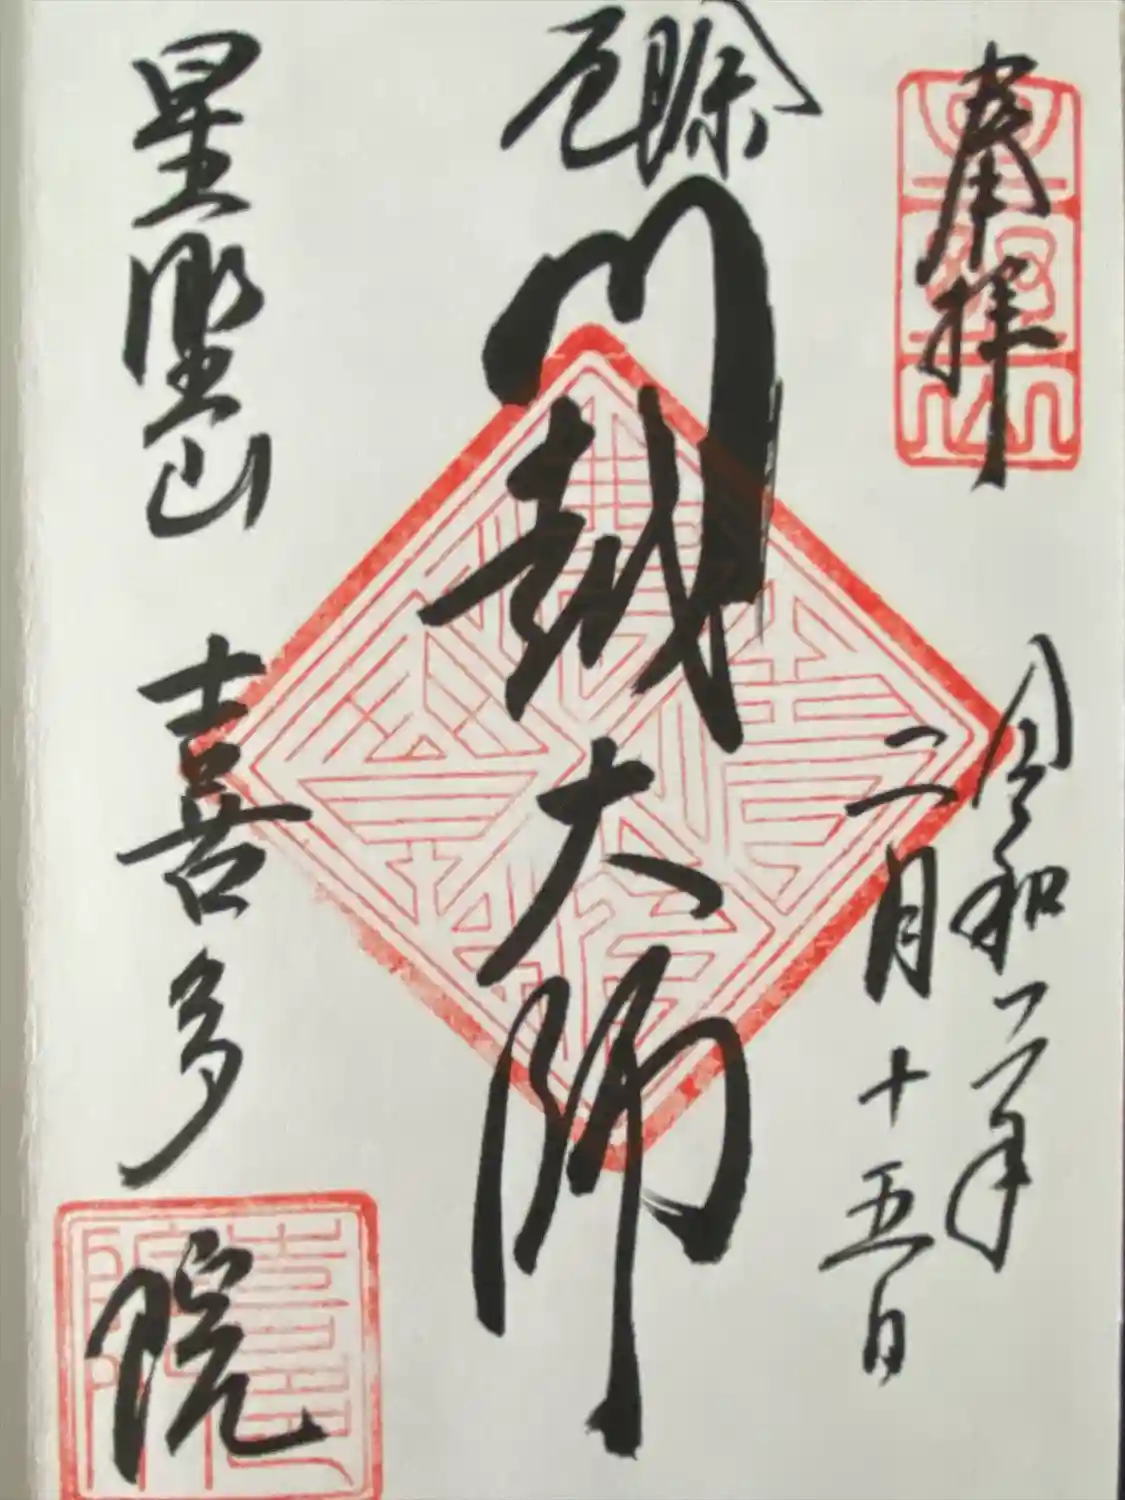 奉拝
令和二年
二月十五日
厄除
川越大師
星野山 喜多院